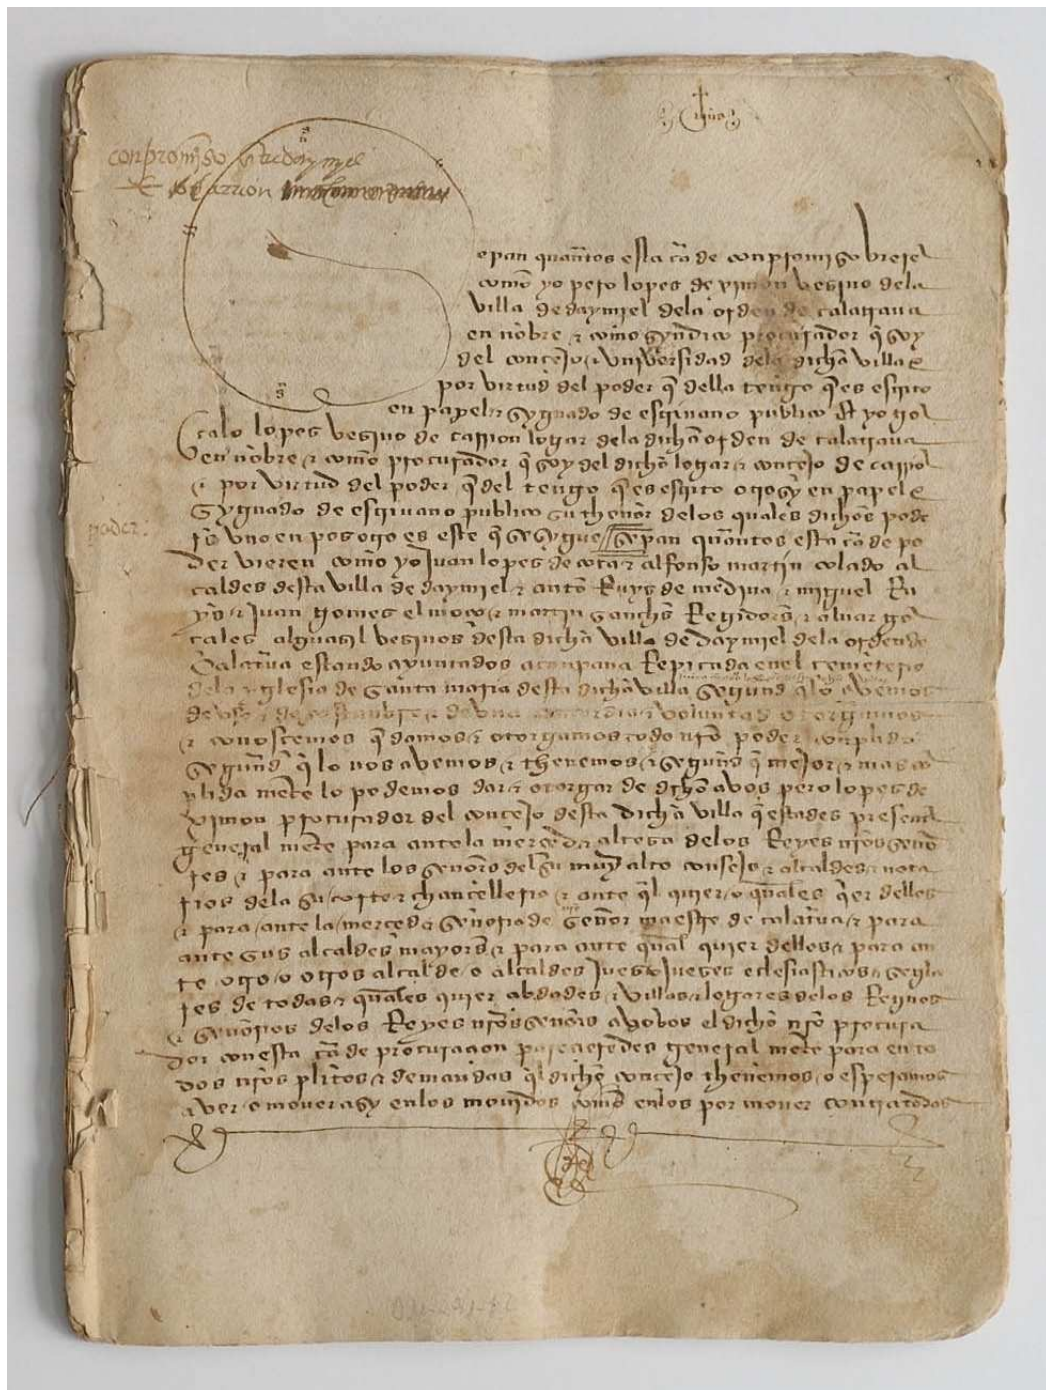 ihus
conpromiso de daymiel
e de carrion
epan quantos esta carta de conpromiso vieren
como yo pero lopes de vimon vesino dela
villa de daymiel dela orden de calatrava
en nonbre e como syndico procurador que soy
del concejo e unyversidad dela dicha villa e
por virtud del poder que della tengo que es escrito
en papel e sygnado de escrivano publico et yo gon
calo lopes vesino de carrion logar dela dicha orden de calatrava
en nonbre e como procurador que soy del dicho logar e concejo de carrion
e por virtud del poder que del tengo que es escrito otrosy en papel e
sygnado de escrivano publico su thenor delos quales dichos pode
rs uno en pos otro es este que se sygue sepan quantos esta carta de po
poder
der vieren como yo juan lopes de cota e alfonso martin colado al
caldes desta villa de daymiel e anton ruys de medina e miguel ru
ys e juan gomes el moco e martin sanches regidores e alvar gon
cales alguasyl vesinos desta dicha villa de daymiel dela orden de
calatrava estando ayuntados a canpana repicada en el cementerio
dela yglesia de santa maria desta dicha villa segund que lo avemos
de uso e de costunbre e de una concordia e voluntad otorgamos
e conoscemos que damos e otorgamos todo nuestro poder conplido
segund que lo nos avemos e thenemos e segund que mejor e mas con
plida mente lo podemos dar e otorgar de derecho a vos pero lopes de
vimon procurador del concejo desta dicha villa que estades presente
general mente para ante la merced e altesa delos reyes nuestros seno
res e para ante los senores del su muy alto consejo e alcaldes e nota
rios dela su corte e chancelleria e ante qual quier o quales quier dellos
e para ante la merced e senoria de senor maestre de calatrava e para
ante sus alcaldes mayores e para ante qual quier dellos e para an
te otro o otros alcalde o alcaldes jues o jueses eclesiasticos e segla
res de todas e quales quier cibdades e villas e logares delos regnos
e senorios delos reyes nuestros senores a vos el dicho nuestro procura
dor con esta carta de procuracion parescieredes general mente para en to
dos nuestros plitos e demandas quel dicho concejo thenemos o esperamos
aver o mover asy en los movidos como en los por mover contra todas